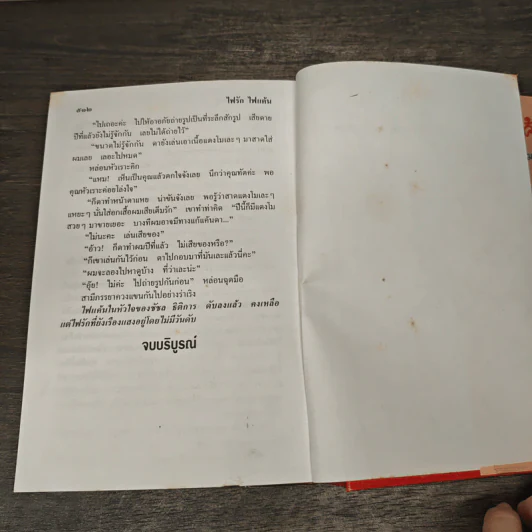 ๕๓๒
ไฟรัก ไฟแค้น
“ไปเถอะค่ะ ไปให้อาอภัยถ่ายรูปเป็นที่ระลึกสักรูป เสียดาย
ปีที่แล้วยังไม่รู้จักกัน เลยไม่ได้ถ่ายไว้”
“ขนาดไม่รู้จักกัน ตายังเล่นเอาเนื้อแตงโมเละๆ มาสาดใส่
ผมเลย เลอะไปหมด”
หล่อนหัวเราะคิก
“แหม! เห็นเป็นคุณแล้วตกใจจังเลย นึกว่าคุณทัดค่ะ พอ
คุณหัวเราะค่อยโล่งใจ”
“ก็ตาทำหน้าตาแหย น่าขันจังเลย พอรู้ว่าสาดแตงโมเละๆ
แหยะๆ นั่นใส่อกเสื้อผมเสียเต็มรัก” เขาทำท่าคิด “ปีนี้ก็มีแตงโม
สวยๆ มาขายเยอะ บางทีผมอาจมีทางแก้แค้นตา...”
“ไม่นะคะ เล่นเสียของ”
“อ้าว! ก็ตาทำผมปีที่แล้ว ไม่เสียของหรือ?”
“ก็เขาเล่นกันไว้ก่อน ตาไปกอบมาที่มันเละแล้วนี่คะ”
“ผมจะลองไปหาดูบ้าง ที่ว่าเละน่ะ”
“อุ๊ย! ไม่ค่ะ ไปถ่ายรูปกันก่อน” หล่อนฉุดมือ
สามีภรรยาควงแขนกันไปอย่างร่าเริง
ไฟแค้นในหัวใจของชัชล ธิติการ ดับลงแล้ว คงเหลือ
แต่ไฟรักที่ยังเรืองแสงอยู่โดยไม่มีวันดับ
จบบริบูรณ์